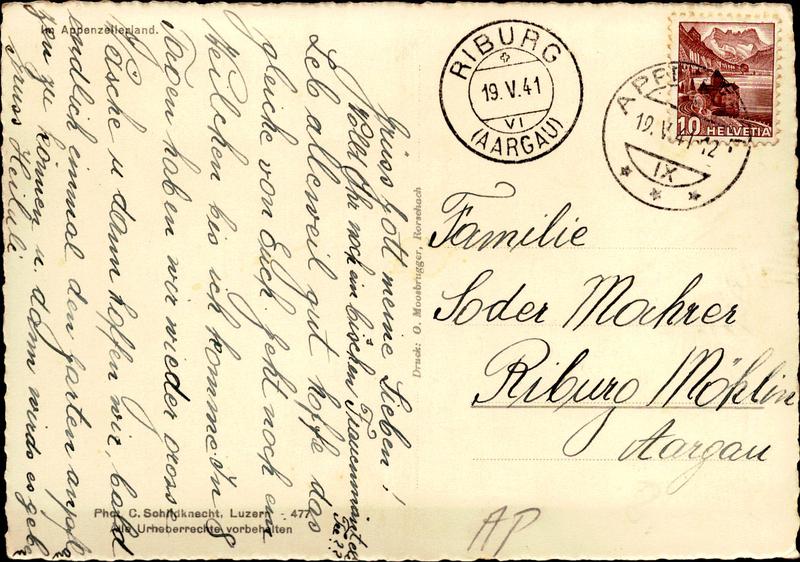 Im Appenzellerland.
Grüss Gott meine Lieben!
Wollt Ihr noch ein bischen Frauenmänteli
Tee??
Leb allerweil gut hoffe das
gleiche von Euch. Geht noch ein
Weilchen bis ich komme. In 8
Tagen haben wir wieder gross
Wäsche u. dann hoffen wir, bald
endlich einmal den Garten
zu können u. dann wirds es geben
Gruss Heideli
Phot. C. Schildknecht, Luzern - 477
Alle Urheberrechte vorbehalten
Druck: O. Moosbrugger, Rorschach
RIBURG
19.V.41
VI
(AARGAU)
19.V.41 12
IX
10 HELVETIA
Familie
Soder Mahrer
Riburg/Möhlin
Aargau
AP